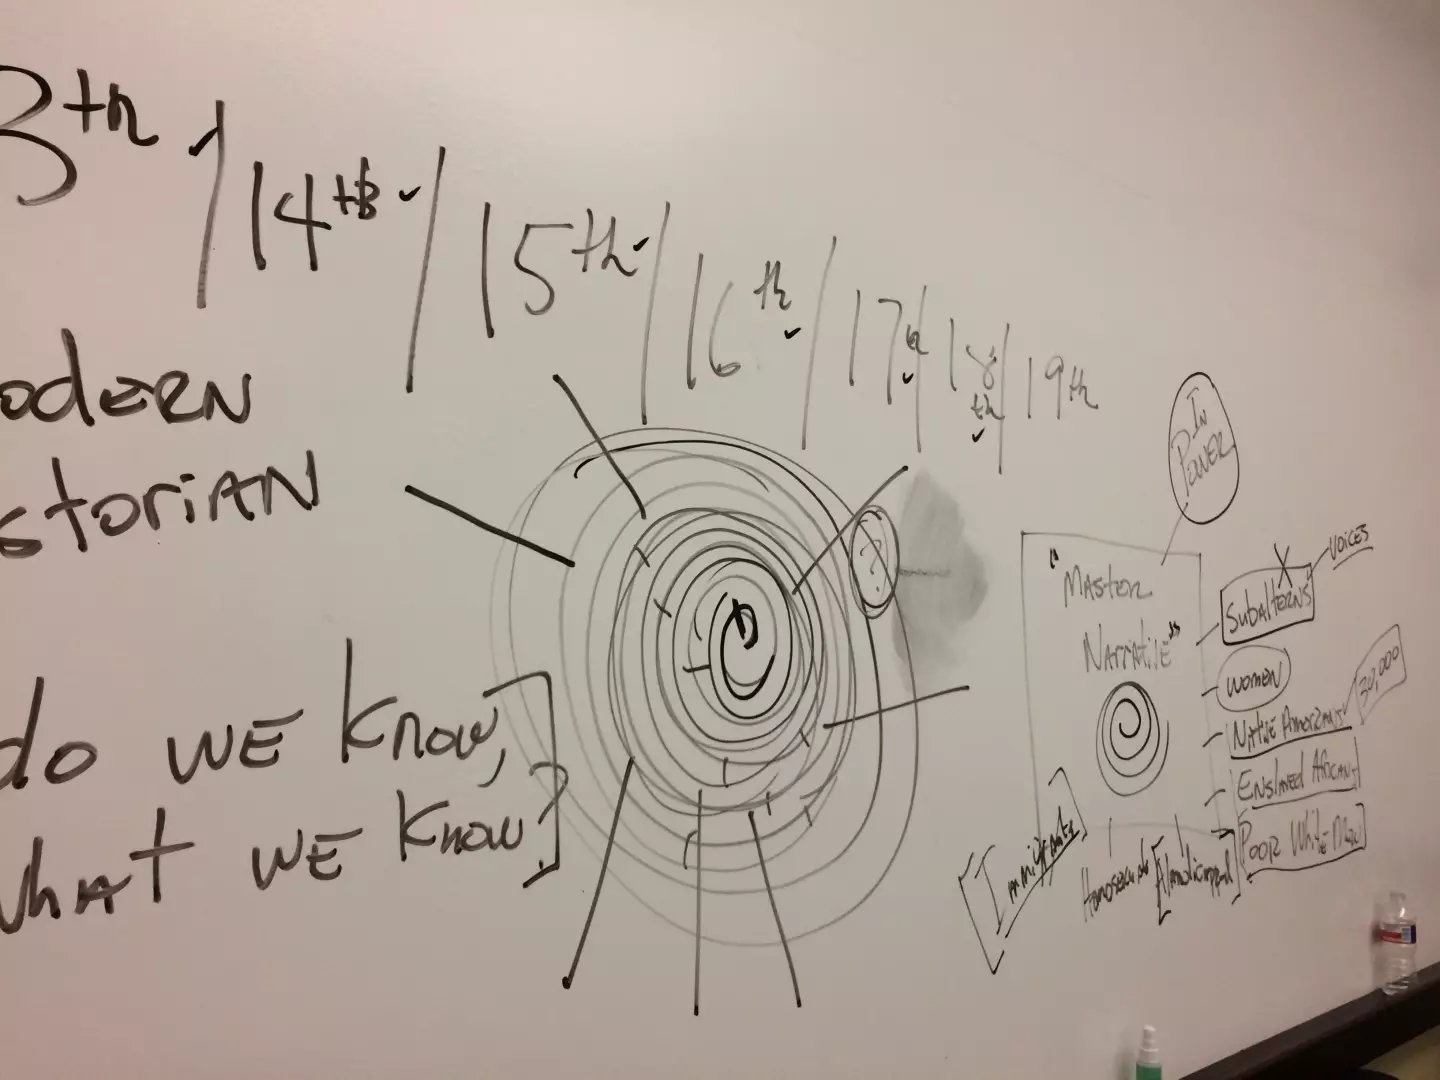 3th / 14th / 15th / 16th / 17th / 18th / 19th
odern
storian
do we know,
what we know?
?
In
Power
"Master
Narrative"
Subalterns
X
voices
women
Native Americans
30,000
Enslaved Africans
Poor White Men
[Immigrants]
Homosexuals
[Handicapped]